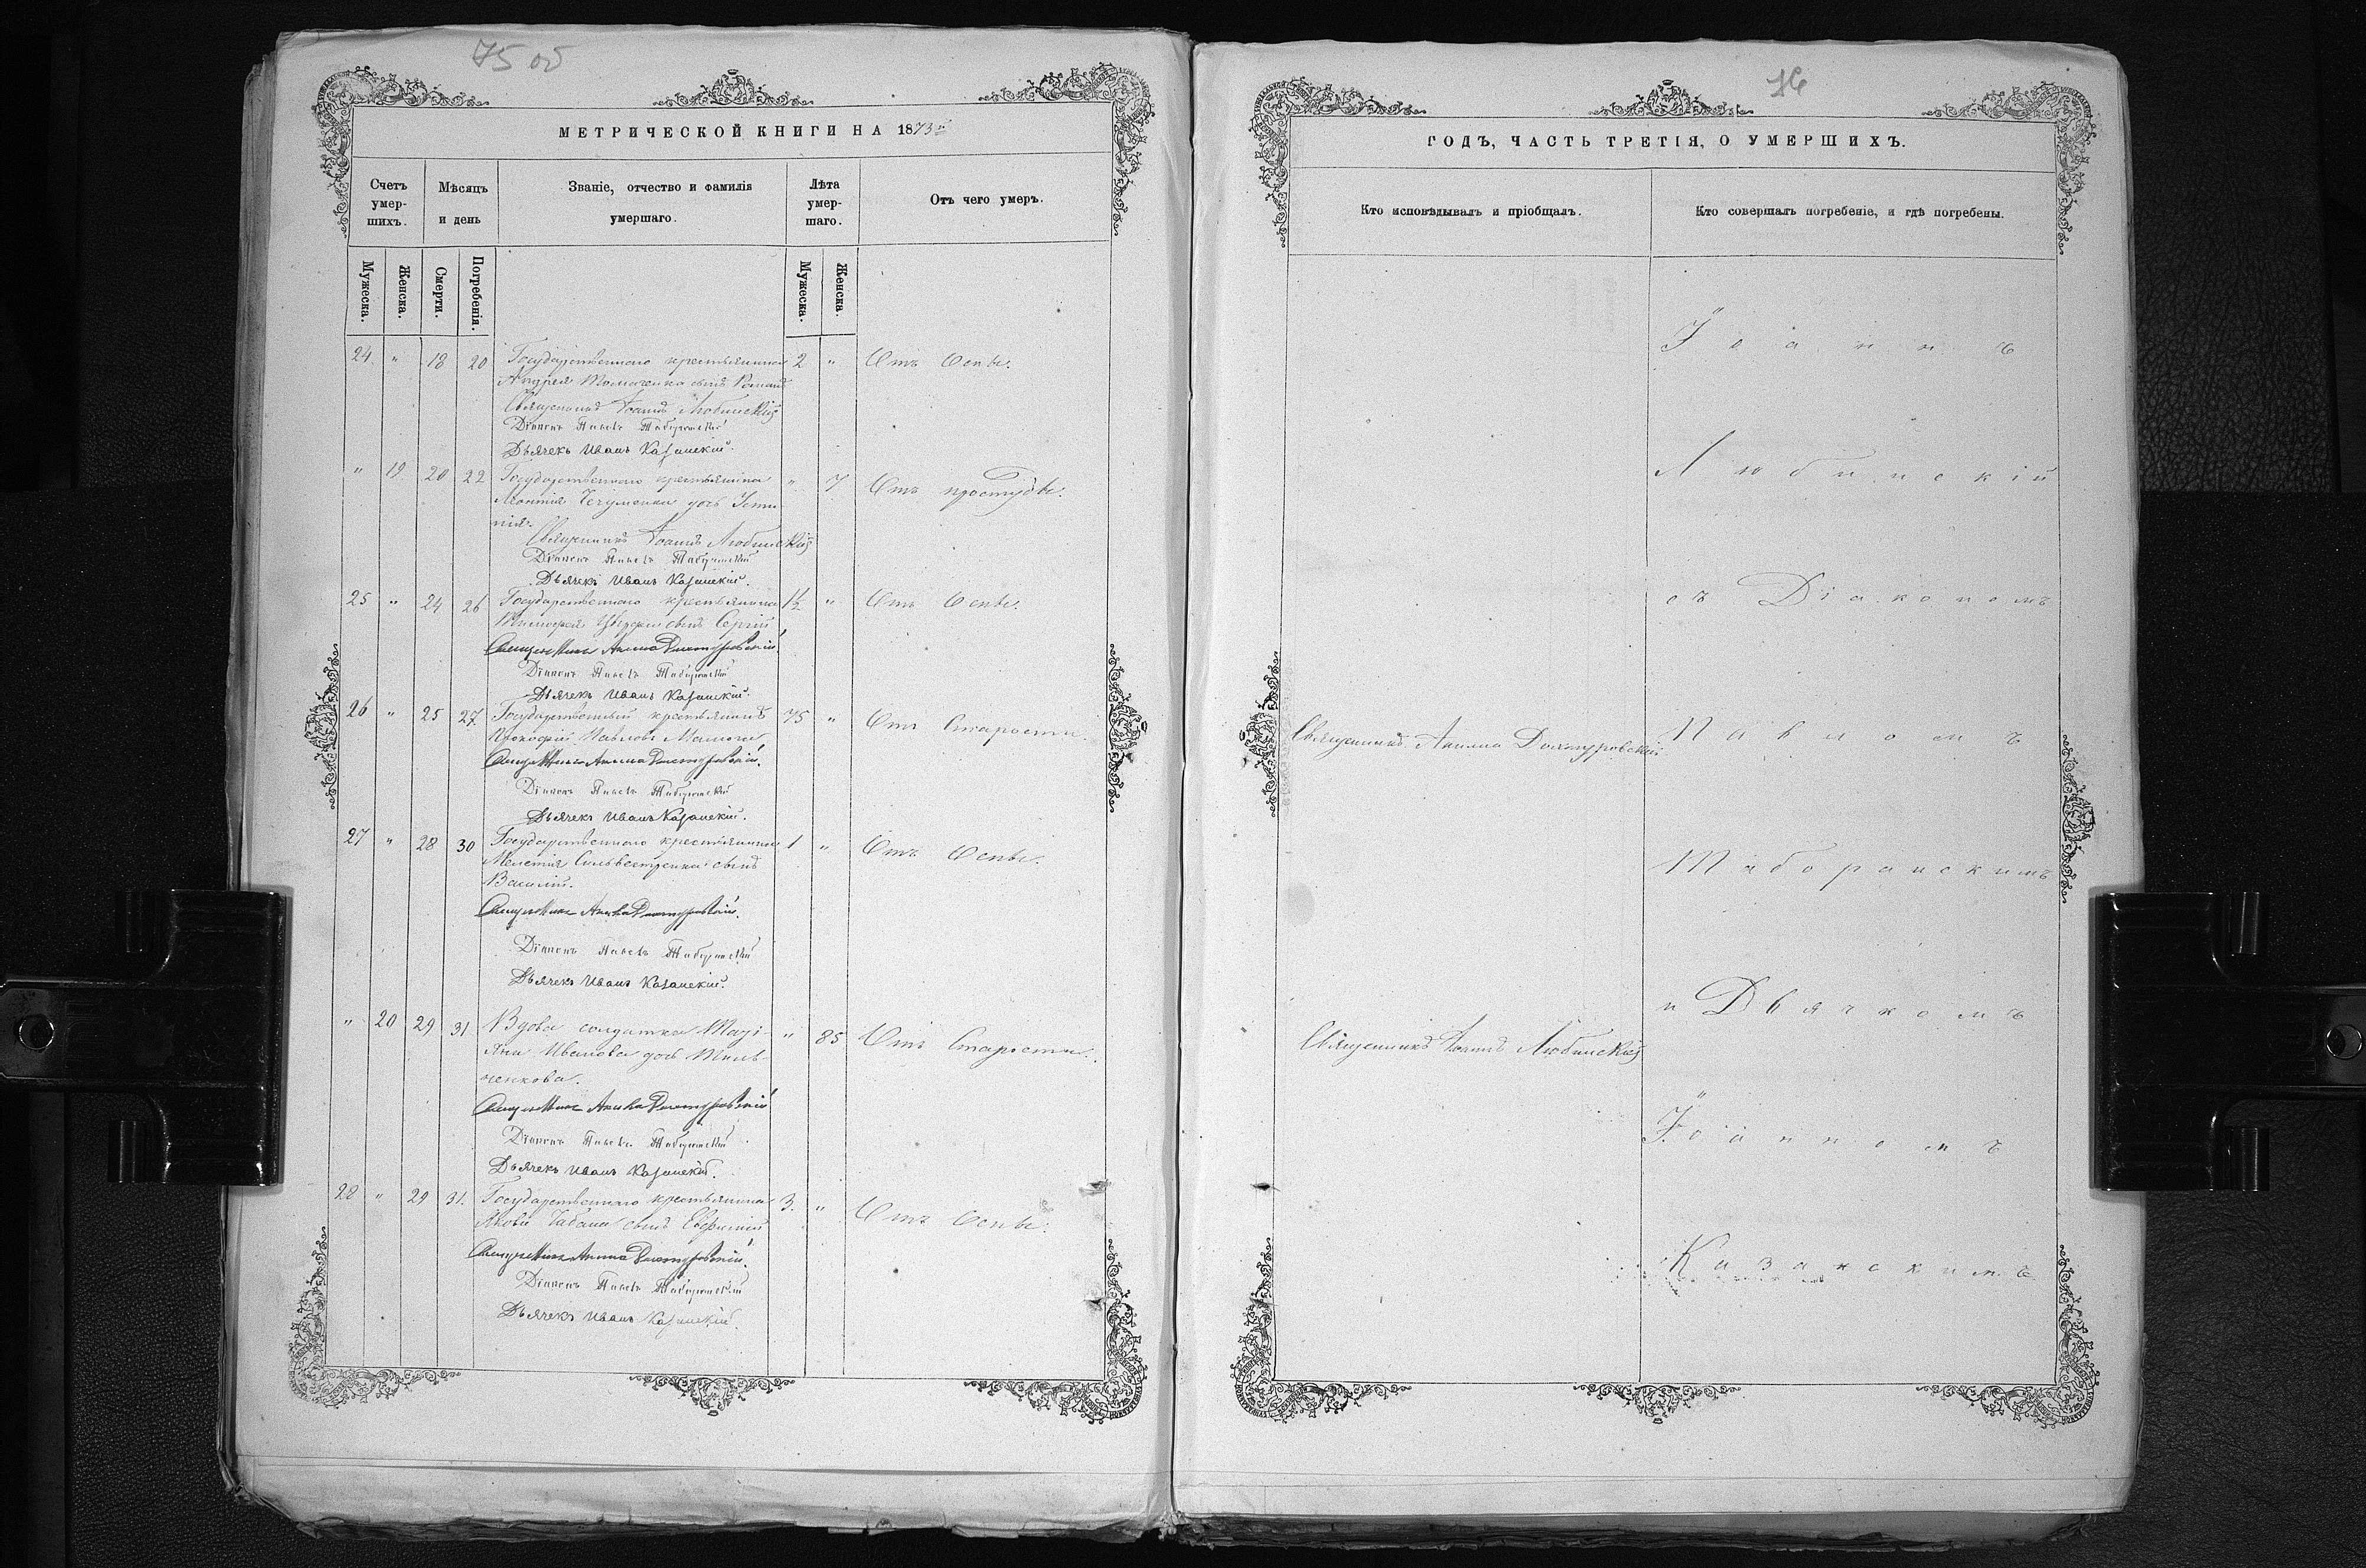 75 об
МЕТРИЧЕСКОЙ КНИГИ НА 1873й
Счетъ умер-шихъ.
Мѣсяцъ и день
Званіе, отчество и фамилія умершаго.
Лѣта умер-шаго.
Отъ чего умеръ.
Мужеска. Женска. Смерти. Погребенія. Мужеска. Женска.
24 " 18 20 Государственнаго крестьянина 2 " Отъ Оспы.
Андрея сынъ Романъ
Священникъ Іоаннъ Любинскій
Діаконъ Павелъ Таборанскій
Дьячекъ Иванъ Казанскій.
" 19 20 22 Государственнаго крестьянина " 7 Отъ простуды.
Леонтія дочь Усти-
нія.
Священникъ Іоаннъ Любинскій
Діаконъ Павелъ Таборанскій
Дьячекъ Иванъ Казанскій.
25 " 24 26 Государственнаго крестьянина 1½ " Отъ Оспы.
Тимофея сынъ Сергій
Священникъ Акила Дихтуровскій
Діаконъ Павелъ Таборанскій
Дьячекъ Иванъ Казанскій.
26 " 25 27 Государственный крестьянинъ 75 " Отъ Старости.
Прокофій Павловъ
Священникъ Акила Дихтуровскій.
Діаконъ Павелъ Таборанскій
Дьячекъ Иванъ Казанскій.
27 " 28 30 Государственнаго крестьянина 1 " Отъ Оспы.
Мелетія Сильвестренка сынъ
Василій.
Священникъ Акила Дихтуровскій.
Діаконъ Павелъ Таборанскій
Дьячекъ Иванъ Казанскій.
" 20 29 31 Вдова солдатка Марі- " 85 Отъ Старости.
Иванова дочь
ченкова.
Священникъ Акила Дихтуровскій
Діаконъ Павелъ Таборанскій
Дьячекъ Иванъ Казанскій.
28 " 29 31. Государственнаго крестьянина 3. " Отъ Оспы.
Якова Чабана сынъ Евфимій
Священникъ Акила Дихтуровскій.
Діаконъ Павелъ Таборанскій
Дьячекъ Иванъ Казанскій
76
ГОДЪ, ЧАСТЬ ТРЕТІЯ, О УМЕРШИХЪ.
Кто исповѣдывалъ и пріобщалъ.
Кто совершалъ погребеніе, и гдѣ погребены.
Іоаннъ
Любинскій
съ Діакономъ
Священникъ Акила Дихтуровскій
Павломъ
Таборанскимъ
и Дьячкомъ
Священникъ Іоаннъ Любинскій
Іоанномъ
Казанскимъ